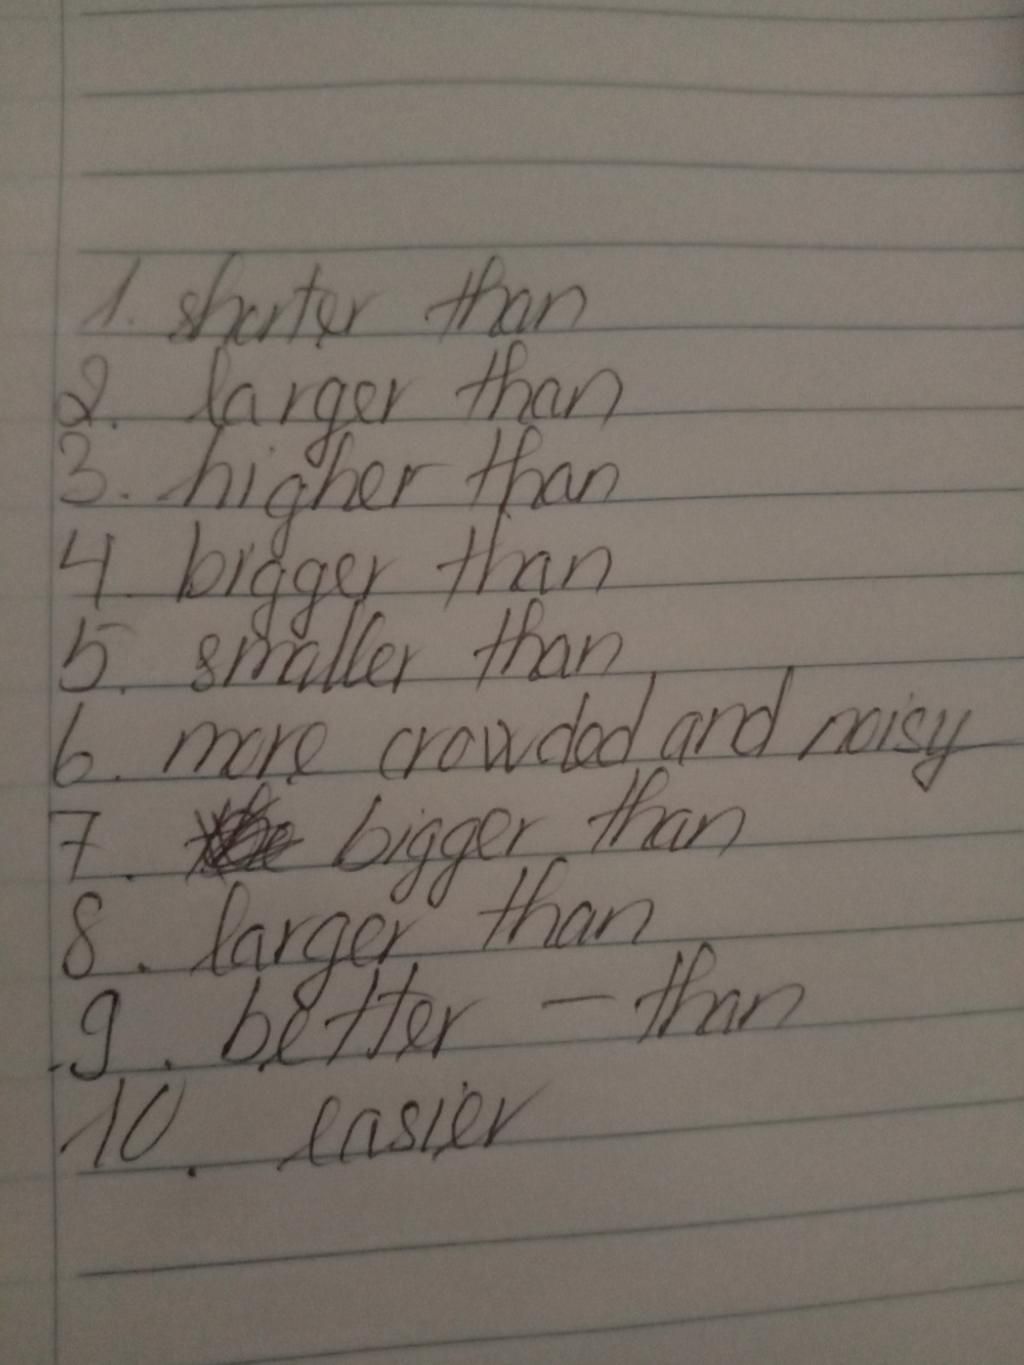 1. shorter than
2. larger than
3. higher than
4. bigger than
5. smaller than
6. more crowded and noisy
7. bigger than
8. larger than
9. better - than
10. easier